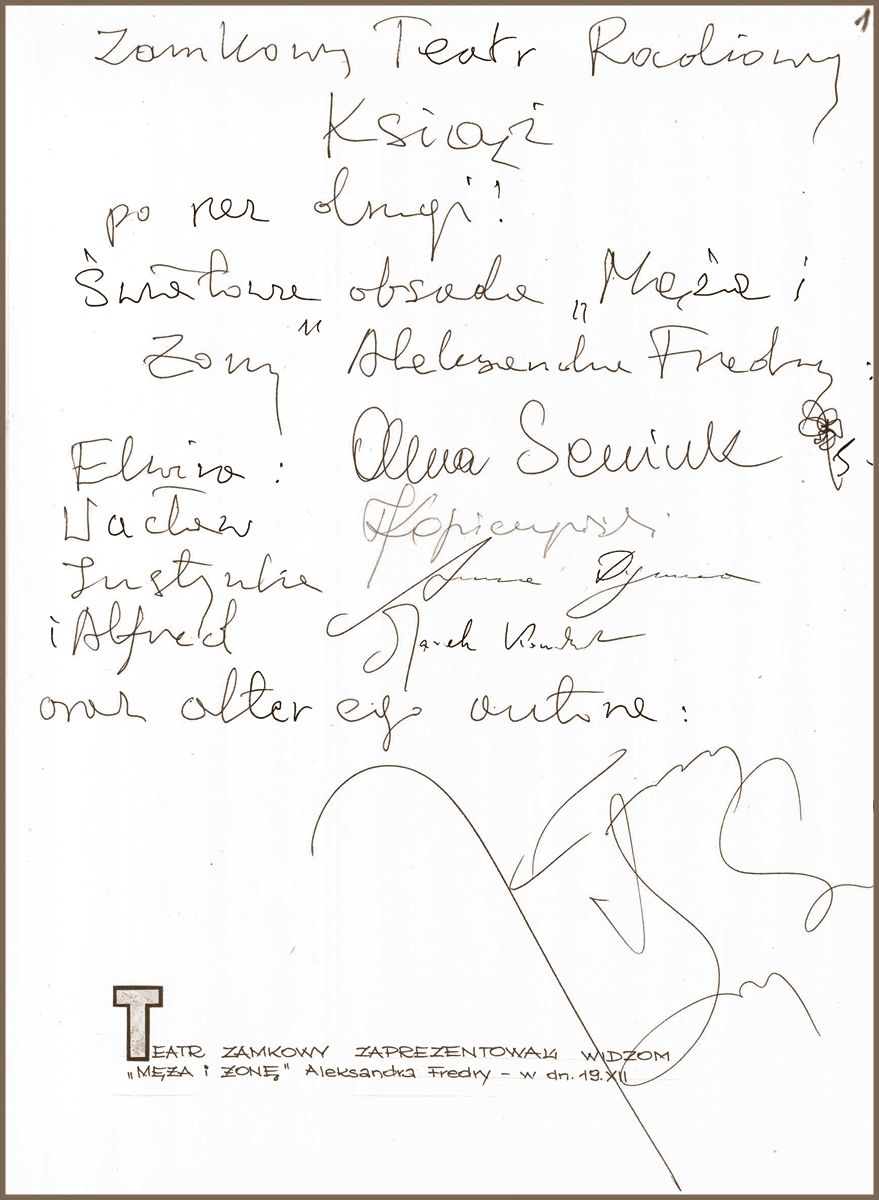 1
Zamkowy Teatr Radiowy
Książ
po raz drugi!
Światowa obsada „Męża i
Żony" Aleksandra Fredry:
Elwira: Anna Seniuk
Wacław
Justynka Anna Dymna
i Alfred Marek Kondrat
oraz alter ego autora:
TEATR ZAMKOWY ZAPREZENTOWAŁ WIDZOM
„MĘŻA i ŻONĘ" Aleksandra Fredry - w dn. 19.XII